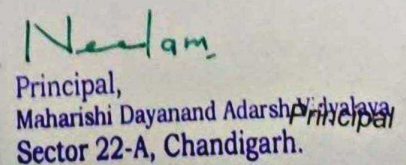 Neelam
Principal,
Maharishi Dayanand Adarsh Vidyalaya
Principal
Sector 22-A, Chandigarh.